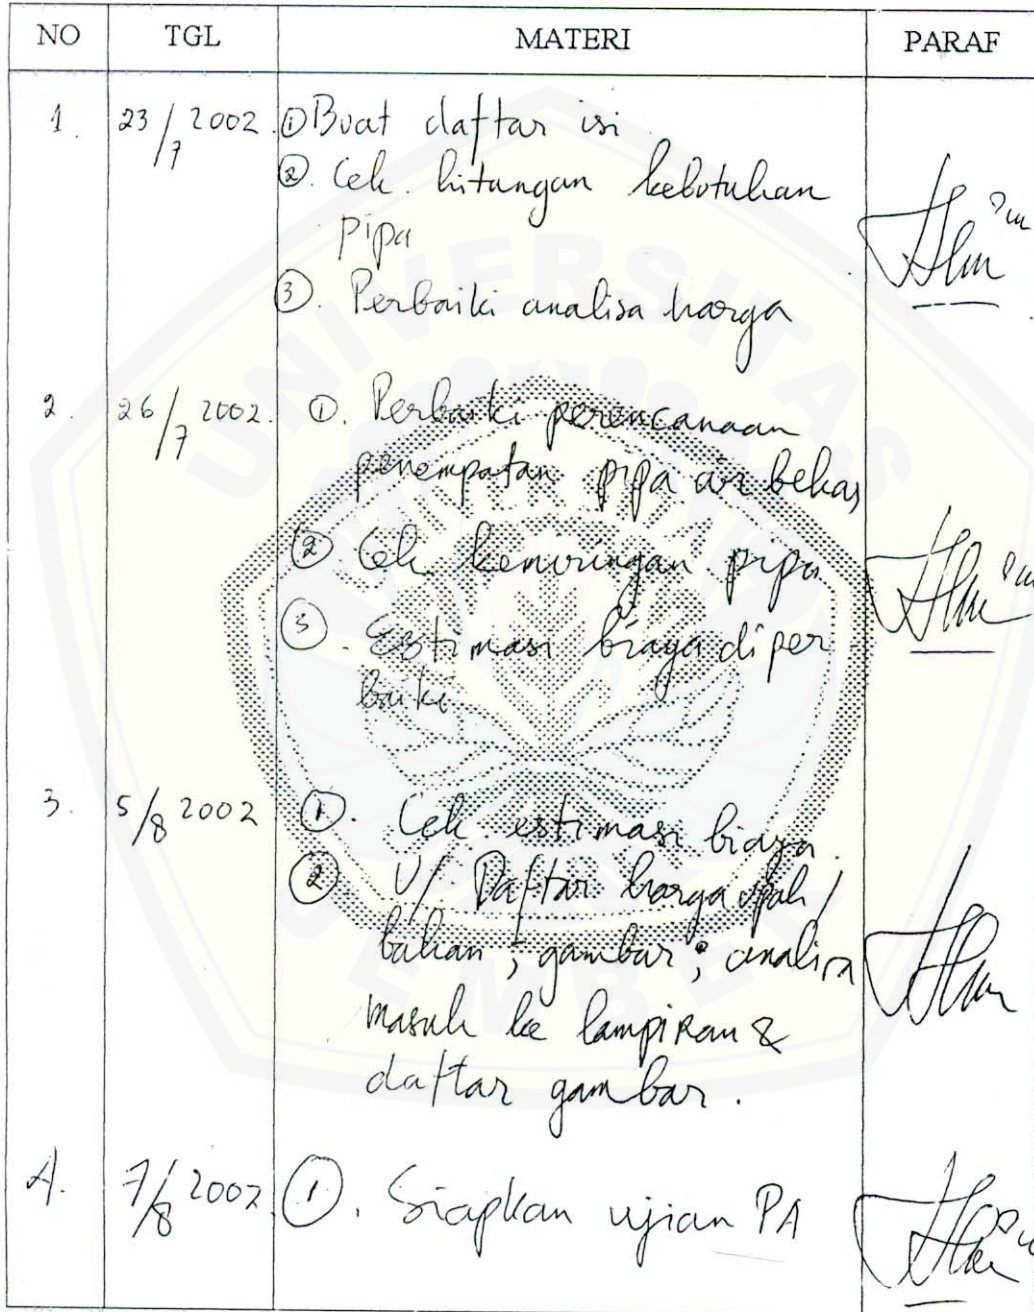 NO TGL MATERI PARAF
1. 23/7 2002. ① Buat daftar isi
②. Cek hitungan kebutuhan
pipa
③. Perbaiki analisa harga
2. 26/7 2002. ①. Perbaiki perencanaan
penempatan pipa air bekas
② Cek kemiringan pipa
③. Estimasi biaya diper
baiki
3. 5/8 2002 ①. Cek estimasi biaya
② U/ Daftar harga upah/
bahan; gambar; analisa
masuk ke lampiran &
daftar gambar.
4. 7/8 2002. ①. Siapkan ujian PA
UNIVERSITAS
JEMBER